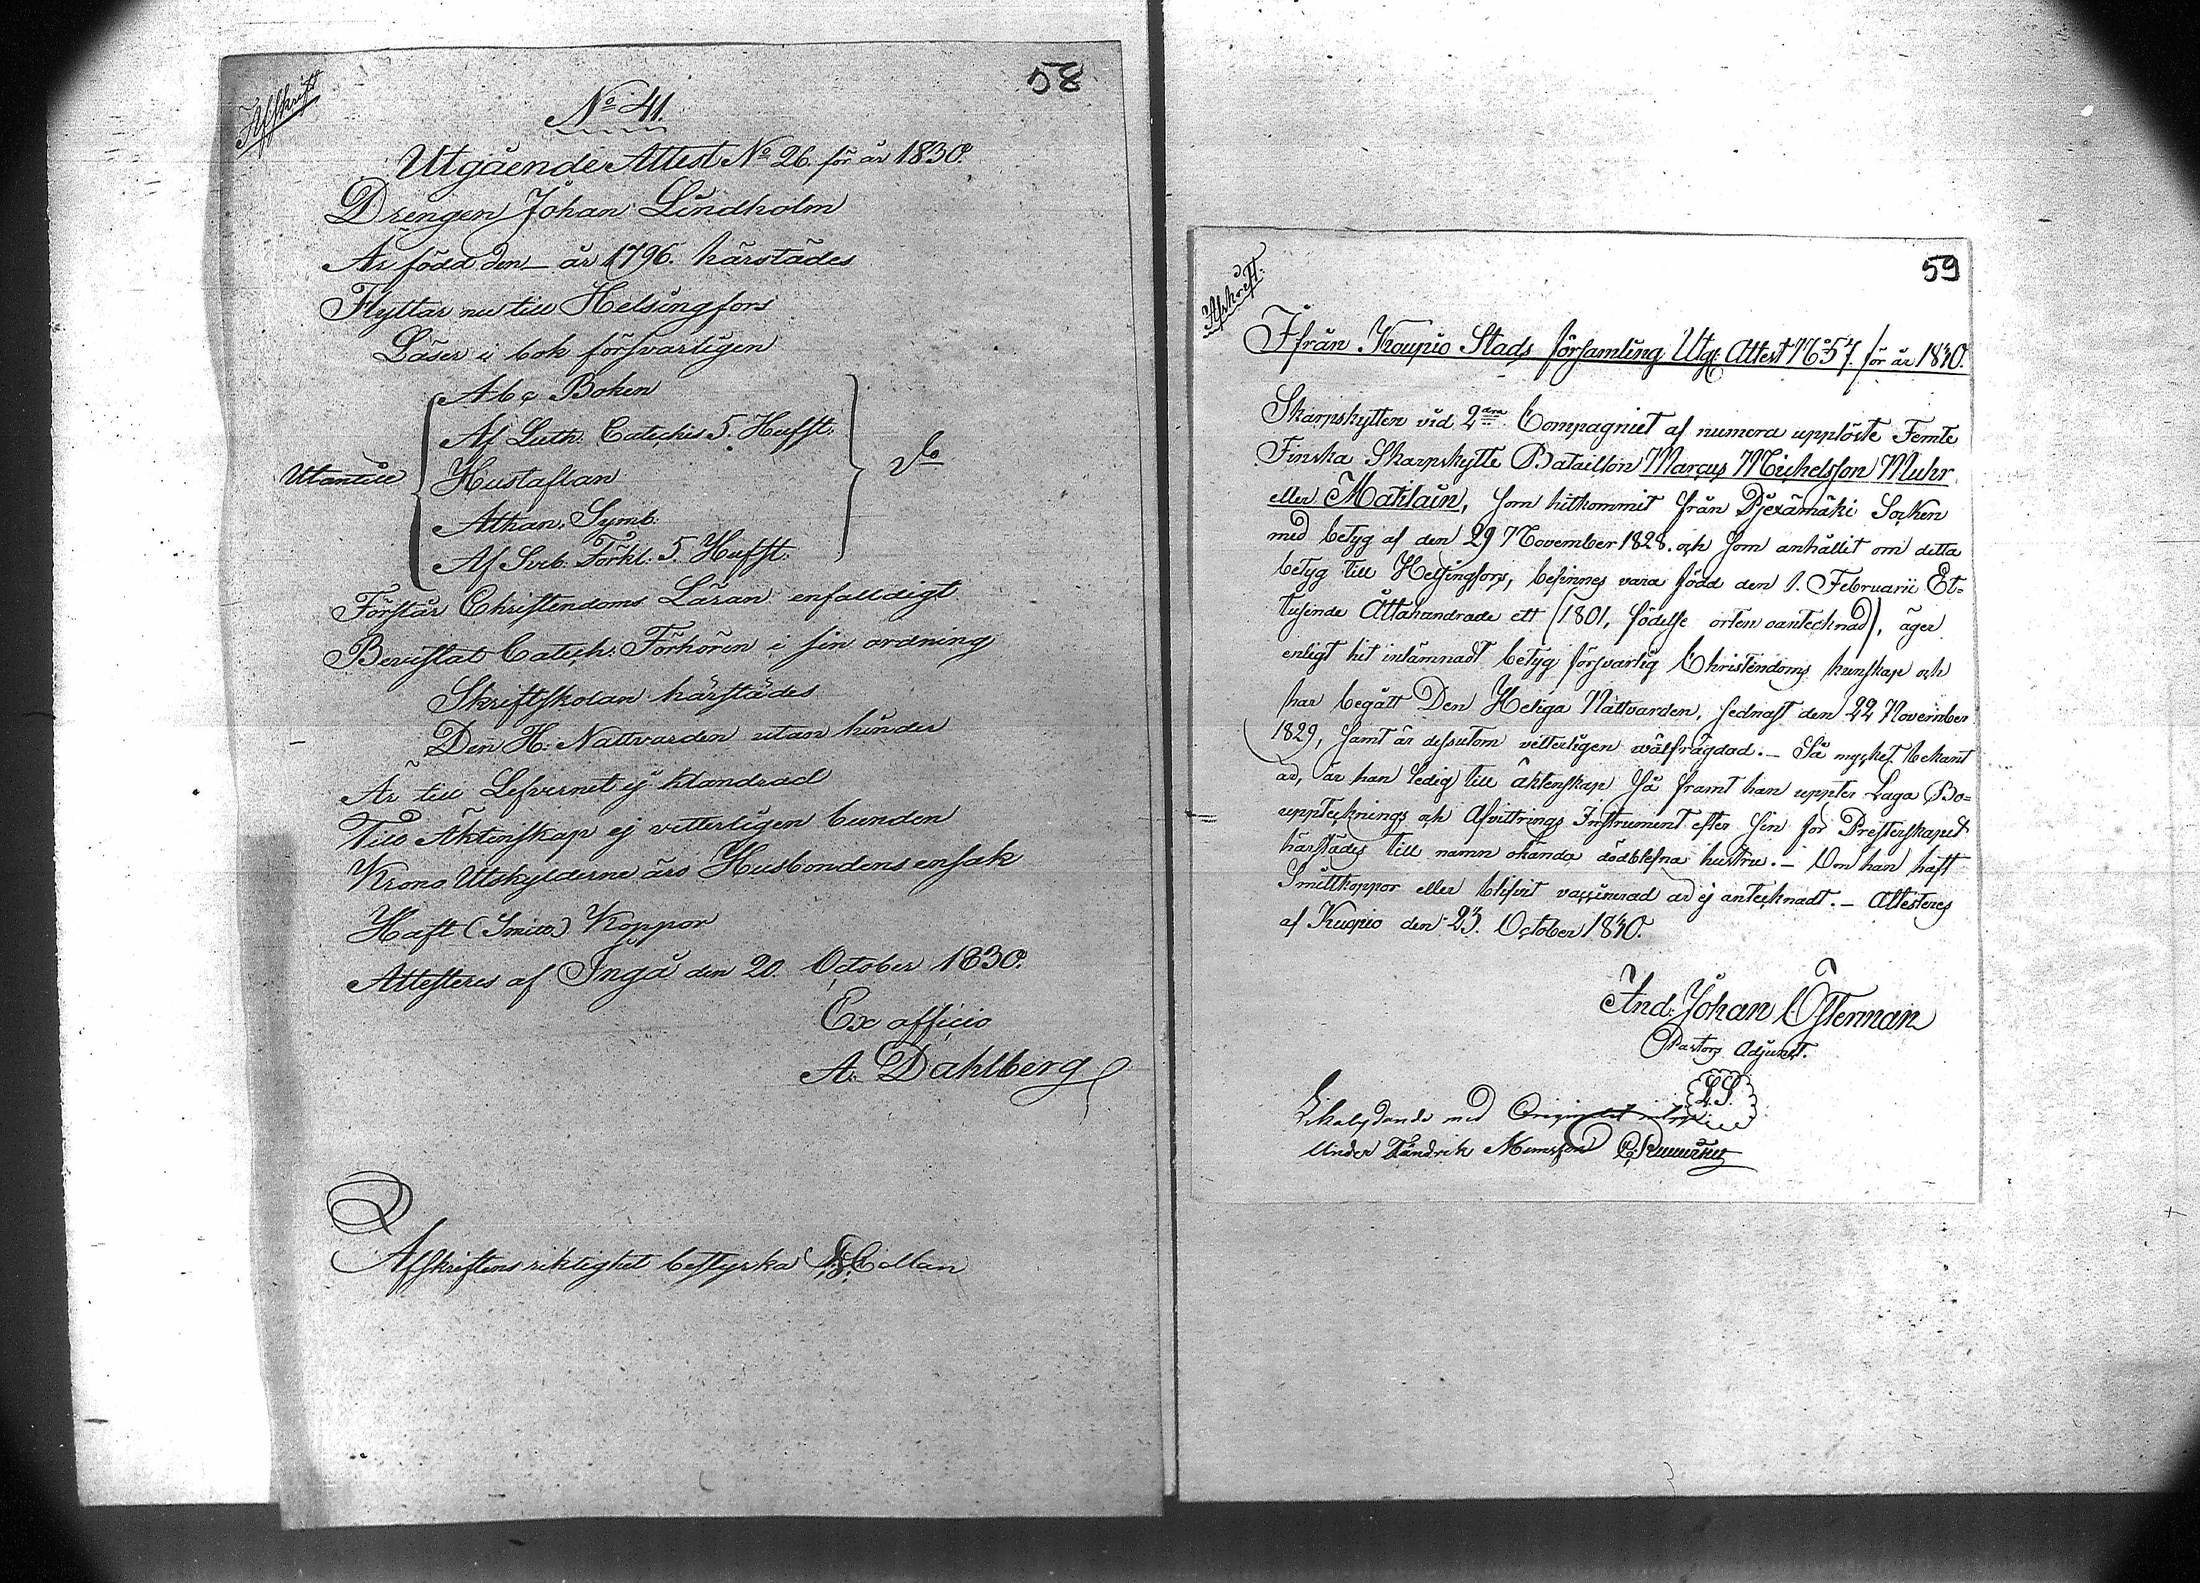 Afskrift
58
No 41.
Utgående Attest No 26. för år 1830.
Drengen Johan Lindholm
Är född den — år 1796. härstädes
Flyttar nu till Helsingfors
Läser i bok försvarligen
Abc Boken
Af Luth. Cateches 5. Hufst.
Utantill Hustaflan do
Athan. Symb.
Af Sveb. Förkl. 5. Hufst.
Förstår Christendoms Läran enfalldigt
Bevistat Catech. Förhören i sin ordning
Skriftskolan härstädes
Den H. Nattvarden utan hinder
Är till Lefvernet ej klandrad
Till Äktenskap ej vetterligen bunden
Krono Utskylderne äro Husbondens ensak
Haft (Smitt) Koppor
Attesteres af Ingå den 20. October 1830.
Ex officio
A. Dahlberg
Afskriftens riktighet bestyrka Collan
Afskrift.
59
Ifrån Koupio Stads församling Utg: Attest No 57. för år 1830.
Skarpskytten vid 2dra Compagniet af numera upplöste Femte
Finska Skarpskytte Bataillon Marcus Michelsson Muhr
eller Matilain, som hitkommit från Pjexämäki Socken
med betyg af den 29 November 1828. och som anhållit om detta
betyg till Helsingfors, befinnes vara född den 1. Februarii Et-
tusende Åttahundrade ett (1801, födelse orten oantecknad), äger
enligt hit inlämnadt betyg försvarlig Christendoms kunskap och
har begått Den Heliga Nattvarden, sednast den 22 November
1829, samt är dessutom vetterligen wälfrägdad. — Så mycket bekant
är, är han ledig till äktenskap så framt han uppter Laga Bo-
uppteknings och Afvittrings Instrument efter sin för Presterskapet
härstädes till namn okända dödblefna hustru. — Om han haft
Smittkoppor eller blifvit vaccinerad är ej antecknadt. — Attesteres
af Kuopio den 23. October 1830.
And: Johan Österman
Pastors Adjunct.
L.S.
Likalydande med Originalet